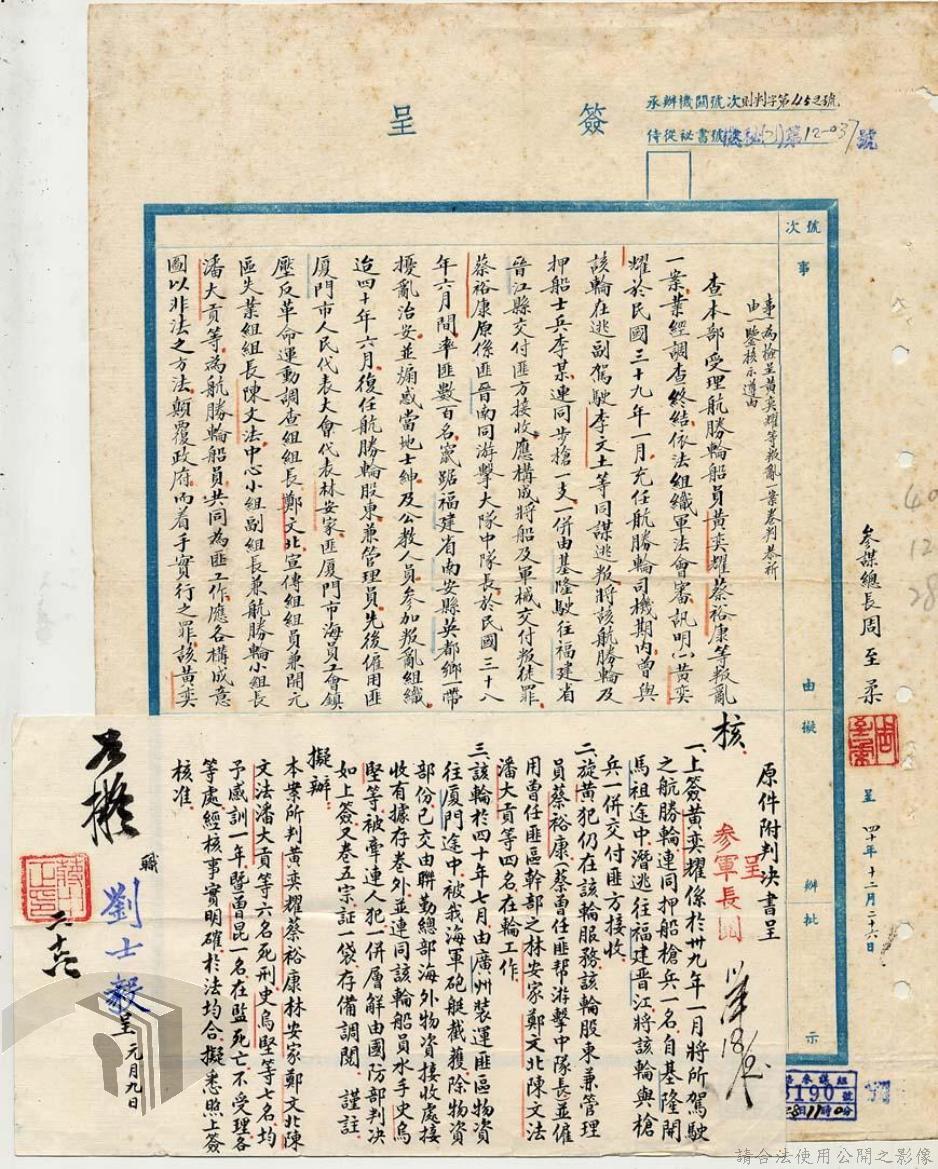 簽呈
承辦機關號次則判字第452號
侍從祕書號機秘(21)第12-037號
號次
事由擬辦批示
事由 為檢呈黃奕耀等叛亂一案卷判恭祈鑒核示遵由
查本部受理航勝輪船員黃奕耀蔡裕康等叛亂
一案業經調查終結依法組織軍法會審訊明(一)黃奕
耀於民國三十九年一月充任航勝輪司機期內曾與
該輪在逃副駕駛李文土等同謀逃叛將該航勝輪及
押船士兵李某連同步槍一支一併由基隆駛往福建省
晉江縣交付匪方接收應構成將船及軍械交付叛徒罪
蔡裕康原係匪晉南同游擊大隊中隊長於民國三十八
年六月間率匪數百名竄踞福建省南安縣英都鄉一帶
擾亂治安並煽惑當地士紳及公教人員參加叛亂組織
迨四十年六月復任航勝輪股東兼管理員先後僱用匪
廈門市人民代表大會代表林安家匪廈門市海員工會鎮
壓反革命運動調查組組長鄭文北宣傳組組員兼開元
區失業組組長陳文法中心小組副組長兼航勝輪小組長
潘大貢等為航勝輪船員共同為匪工作應各構成意
圖以非法之方法顛覆政府而着手實行之罪該黃奕
參謀總長周至柔
呈 四十年十二月二十六日
40
12
28
核
原件附判決書呈
呈
參軍長閱
一、上簽黃奕耀係於卅九年一月將所駕駛
之航勝輪連同押船槍兵一名自基隆開
馬祖途中潛逃往福建晉江將該輪與槍
兵一併交付匪方接收
二、旋黃犯仍在該輪服務該輪股東兼管理
員蔡裕康蔡曾任匪幫游擊中隊長並僱
用曾任匪區幹部之林安家鄭文北陳文法
潘大貢等四名在輪工作
三、該輪於四十年七月由廣州裝運匪區物資
往廈門途中被我海軍砲艇截獲除物資
部份已交由聯勤總部海外物資接收處接
收有據存卷外並連同該輪船員水手史烏
堅等被牽連人犯一併層解由國防部判決
如上簽又卷五宗証一袋存備調閱 謹註
擬辦：
本案所判黃奕耀蔡裕康林安家鄭文北陳
文法潘大貢等六名死刑史烏堅等七名均
予感訓一年暨曾昆一名在監死亡不受理各
等處經核事實明確於法均合擬悉照上簽
核准
職劉士毅呈 元月九日
如擬
3190號
請合法使用公開之影像